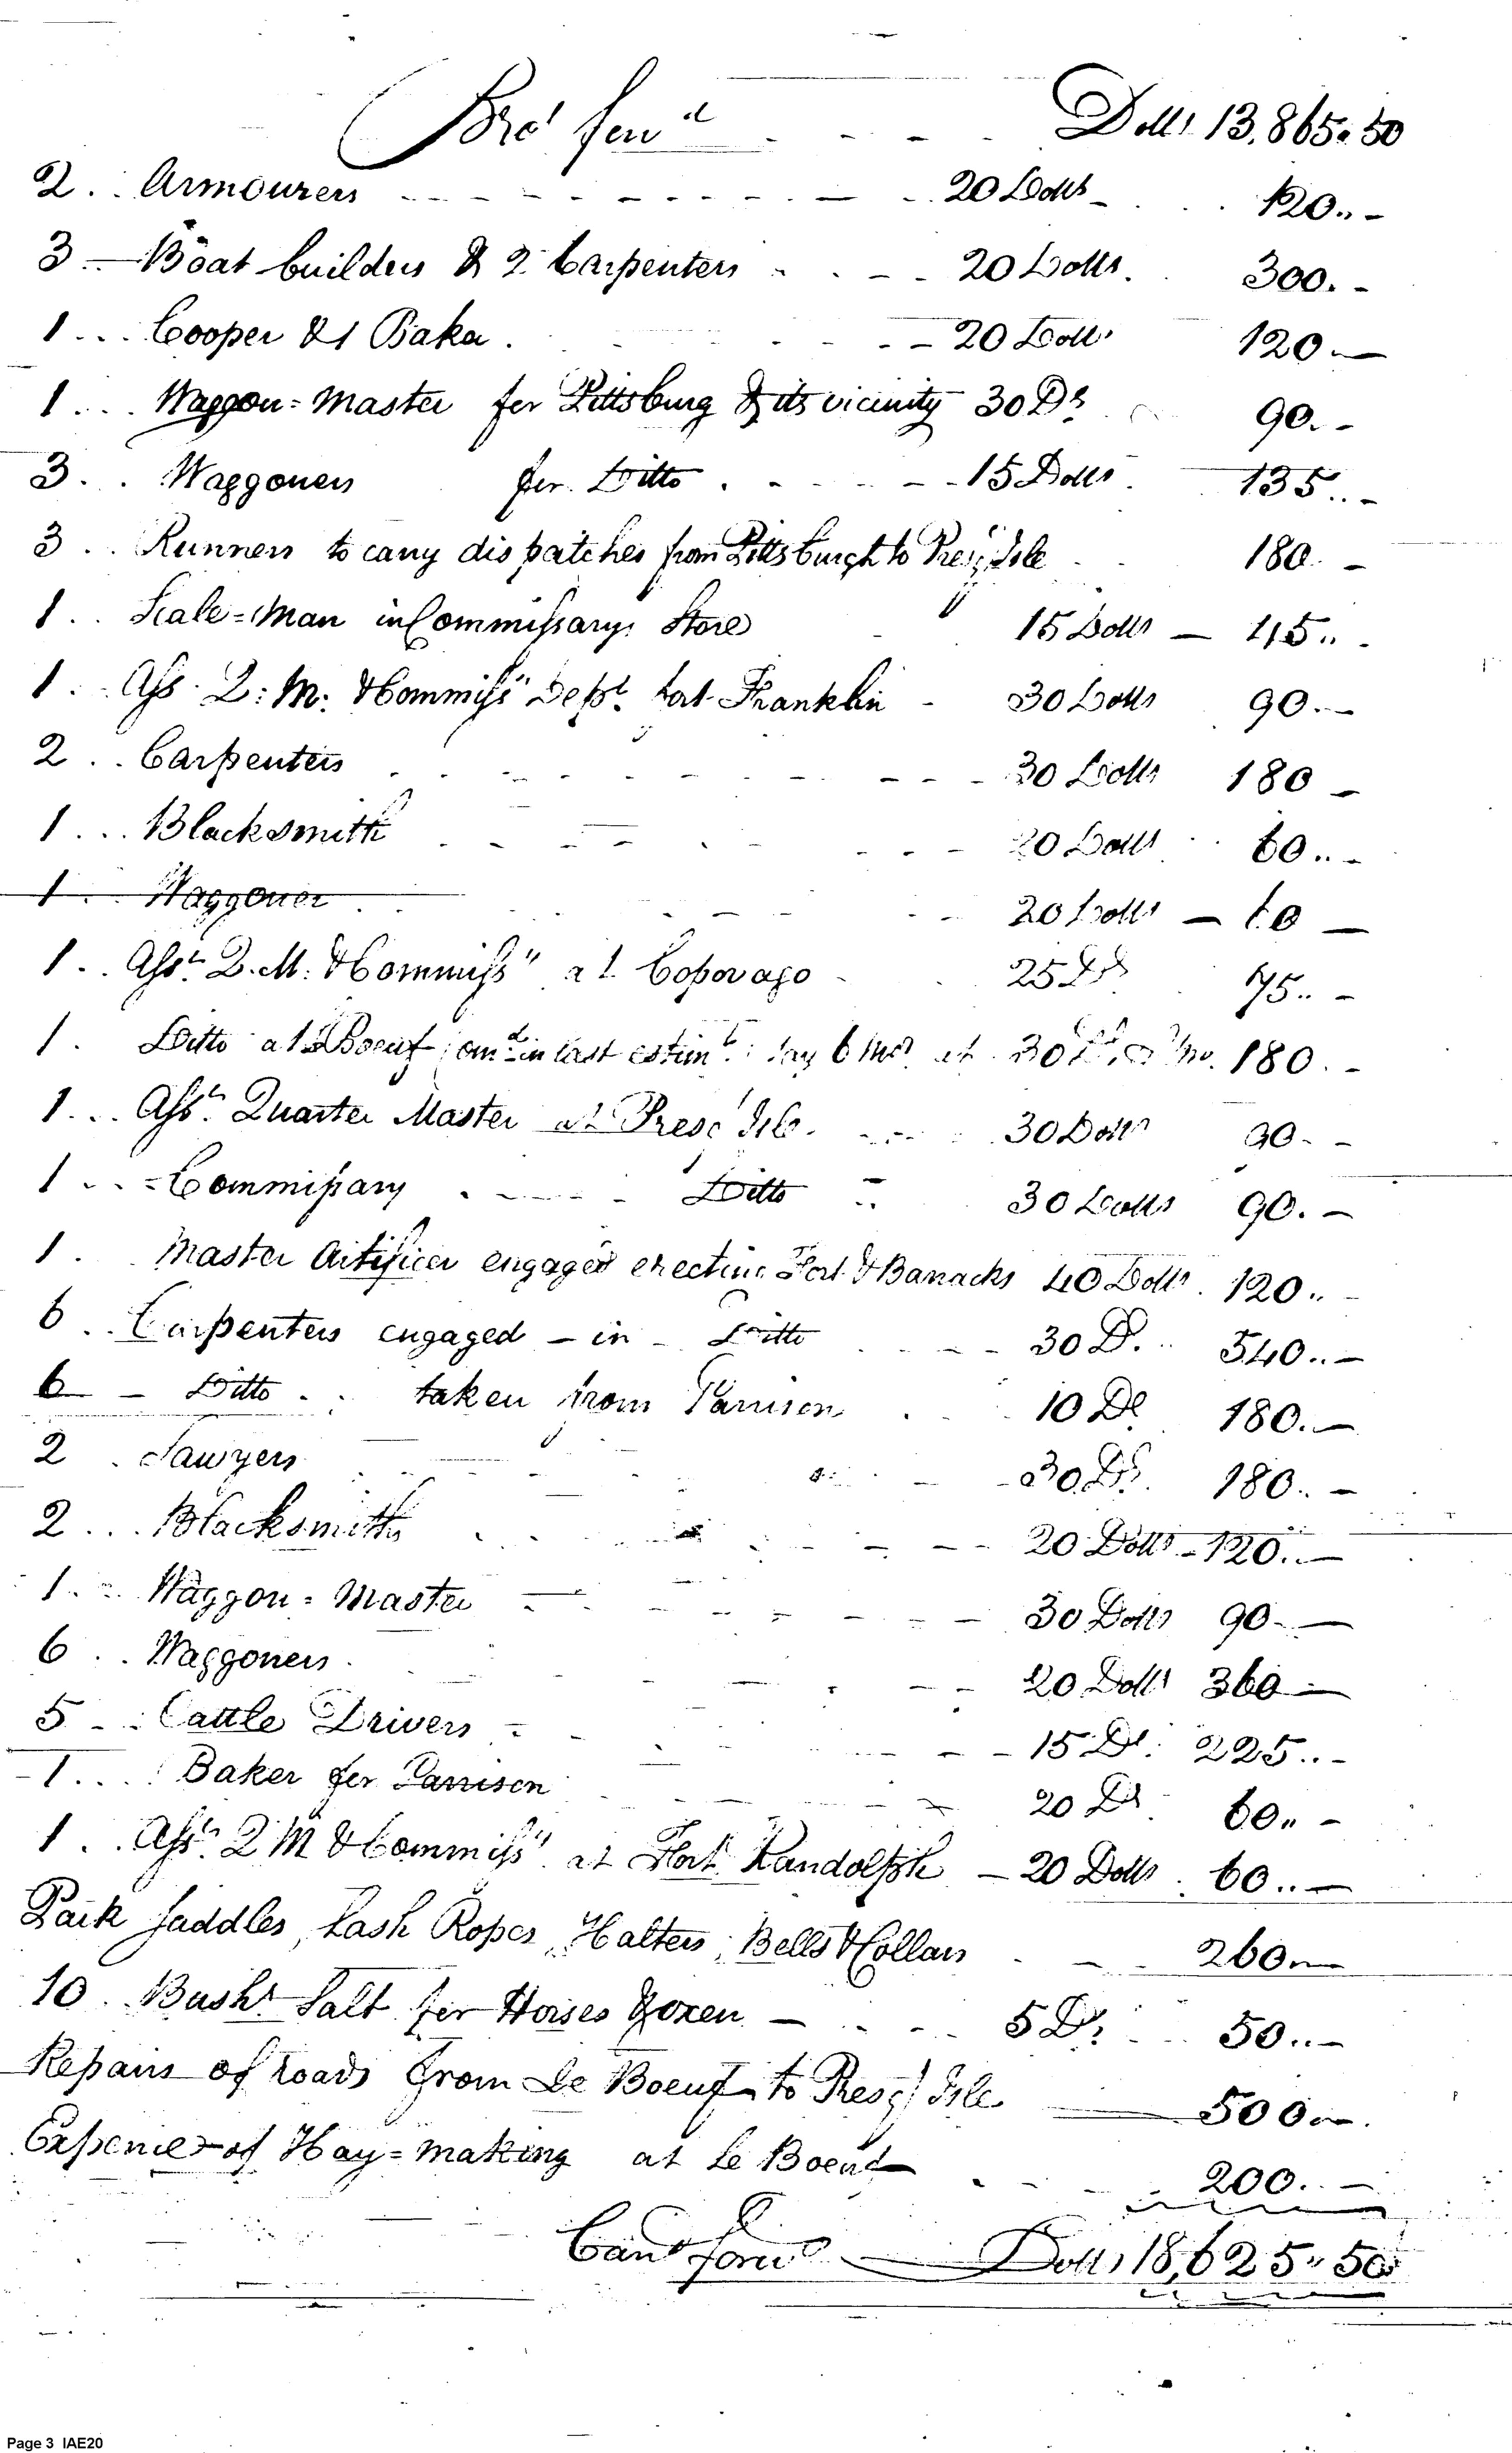 Bro.t forw.d - - - - Dolls 13,865.50
2 .. Armourers - - - - 20 Dolls - 120.. -
3 - Boat builders & 2 Carpenters - - - 20 Dolls. 300. -
1 ... Cooper & 1 Baker . - - - 20 Dolls 120. -
1 ... Waggon=Master for Pittsburg & its vicinity 30 Ds 90.. -
3 .. Waggoners for Ditto . - - - 15 Dolls. 135.. -
3 .. Runners to carry dispatches from Pittsburgh to Presq' Isle 180. -
1 .. Scale=Man in Commissarys Store - 15 Dolls - 45.. -
1 .. Ass. Q: M: & Commiss.y Dep.t Fort Franklin - 30 Dolls 90. -
2 .. Carpenters - - - - 30 Dolls 180 -
1 ... Blacksmith - - - - 20 Dolls 60.. -
1 .. Waggoner - - - - 20 Dolls - 60 -
1 .. Ass.t Q.M. & Commiss.y at 25 Ds 75.. -
1 . Ditto at L Boeuf om.d in last estim.t: say 6 Mos at 30 Ds Mo. 180. -
1 ... Ass.t Quarter Master at Presq' Isle. - - - 30 Dolls 90. -
1 .. = Commissary . - - - Ditto - 30 Dolls 90. -
1 . Master Artificer engaged erecting Fort & Barracks 40 Dolls. 120.. -
6 .. Carpenters engaged - in - Ditto - - - 30 D. 540.. -
6 - Ditto .. taken from Garrison . . . 10 Ds 180. -
2 . Sawyers - - - - 30 Ds. 180.. -
2 ... Blacksmiths - - - - 20 Dolls - 120.. -
1 .. Waggon=Master - - - - 30 Dolls 90. -
6 .. Waggoners. - - - - 20 Dolls 360 -
5 - . Cattle Drivers - - - - 15 Ds. 225.. -
1 ... Baker for Garrison - - - - 20 Ds 60.. -
1 .. Ass.t Q M & Commiss.y at Fort Randolph - 20 Dolls. 60.. -
Pack Saddles, Lash Ropes, Halters, Bells & Collars - - - 260. -
10 . Bush.s Salt for Horses & Oxen - - - 5 Ds. 50.. -
Repairs of roads from Le Boeuf to Presq' Isle - 500. -
Expences of Hay=making at Le Boeuf - - - 200.. -
Car.d forw.d - Dolls 18,625..50
Page 3 IAE20